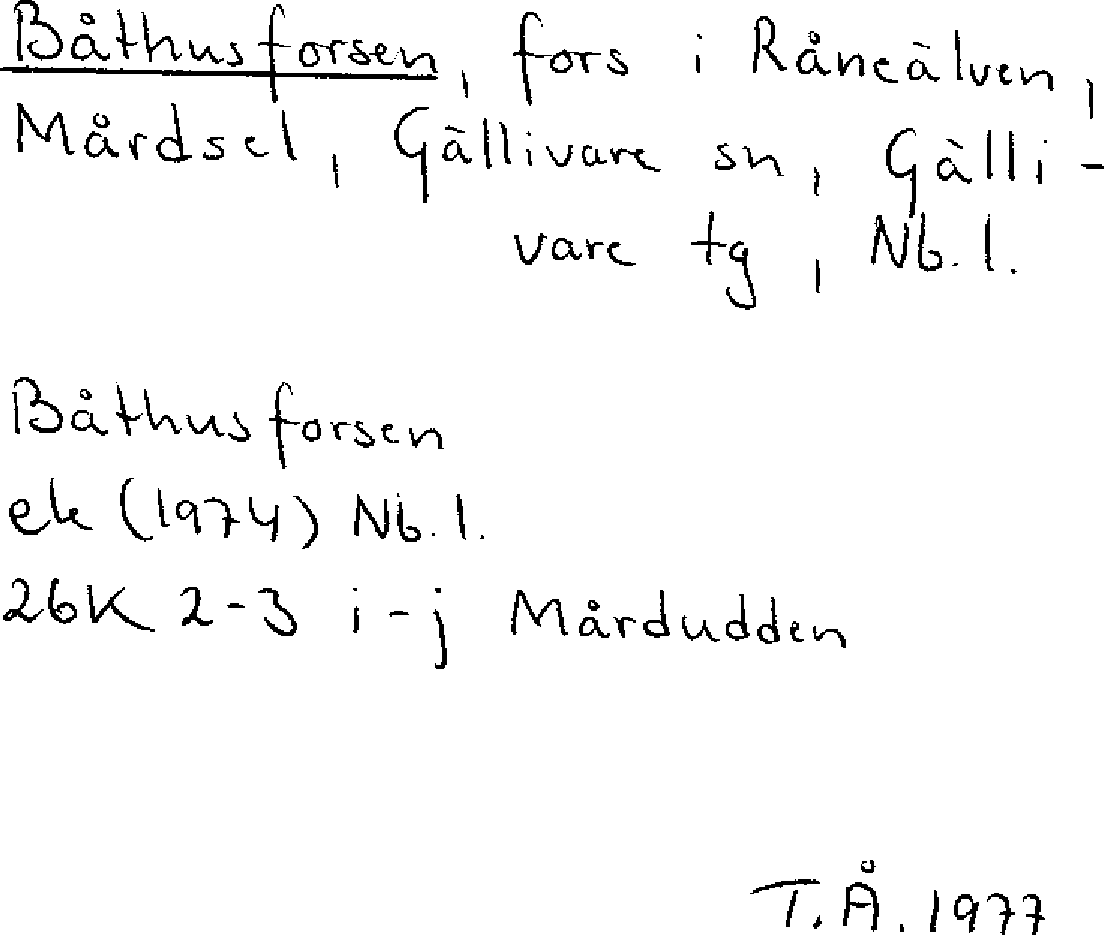 Båthusforsen, fors i Råneälven,
Mårdsel, Gällivare sn, Gälli-
vare tg, Nb. l.
Båthusforsen
ek (1974) Nb. l.
26K 2-3 i-j Mårdudden
T.Å. 1977